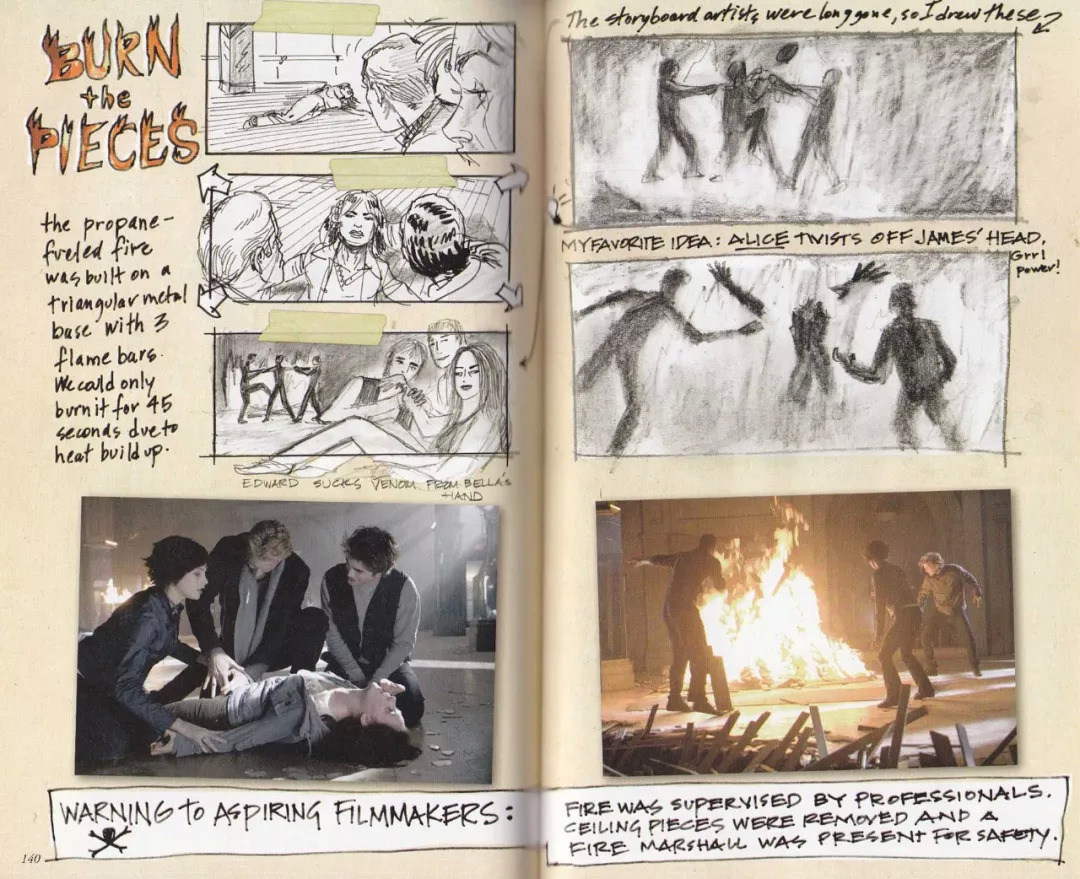 BURN
the
PIECES
the propane-
fueled fire
was built on a
triangular metal
base with 3
flame bars.
We could only
burn it for 45
seconds due to
heat build up.
EDWARD SUCKS VENOM FROM BELLA'S
HAND
WARNING to ASPIRING FILMMAKERS:
140
The storyboard artists were long gone, so I drew these
MY FAVORITE IDEA: ALICE TWISTS OFF JAMES' HEAD.
Grrl
power!
FIRE WAS SUPERVISED BY PROFESSIONALS.
CEILING PIECES WERE REMOVED AND A
FIRE MARSHALL WAS PRESENT FOR SAFETY.